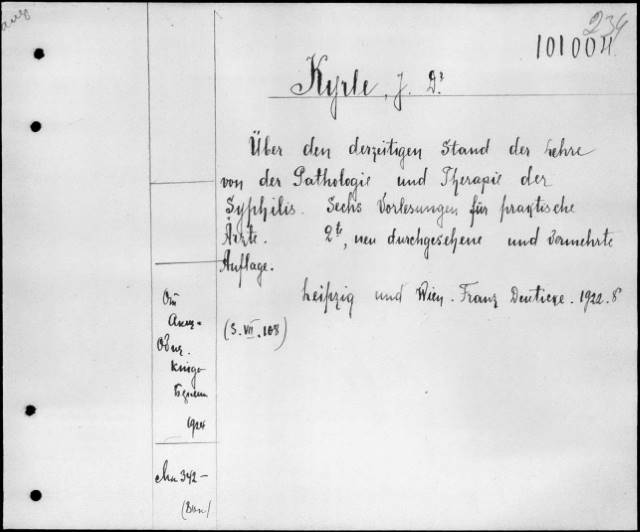 234
101004
Kyrle, J. Dr
Über den derzeitigen Stand der Lehre
von der Pathologie und Therapie der
Syphilis. Sechs Vorlesungen für praktische
Ärzte. 2te, neu durchgesehene und vermehrte
Auflage.
Leipzig und Wien. Franz Deuticke. 1922. 8
(S. VII. 108)
От
Книго-
1924
342 —